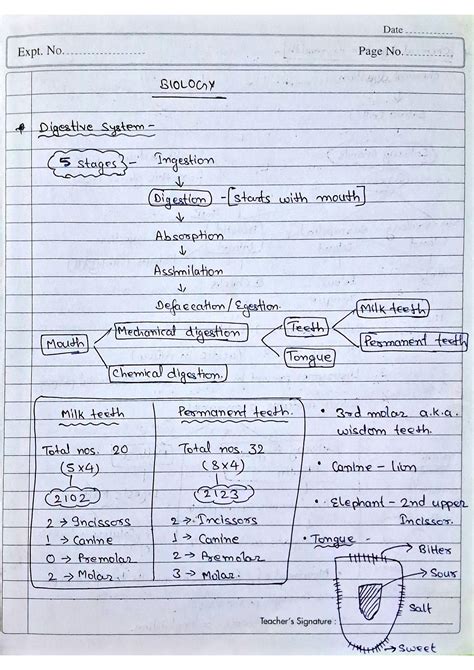 Date
Expt. No.
Page No.
BIOLOGY
* Digestive System -
5 stages - Ingestion
↓
Digestion - [starts with mouth]
↓
Absorption
↓
Assimilation
↓
Defaecation/Egestion.
Mouth
Mechanical digestion
Chemical digestion.
Teeth
Tongue
Milk teeth
Permanent teeth
Milk teeth
Total nos. 20
(5x4)
2102
2 → Incissors
1 → Canine
0 → Premolar
2 → Molar
Permanent teeth.
Total nos. 32
(8x4)
2123
2 → Incissors
1 → Canine
2 → Premolar
3 → Molar.
• 3rd molar a.k.a.
wisdom teeth.
• Canine - lion
• Elephant - 2nd upper
Incissor.
• Tongue -
→ Bitter
→ Sour
Salt
→ Sweet
Teacher's Signature :